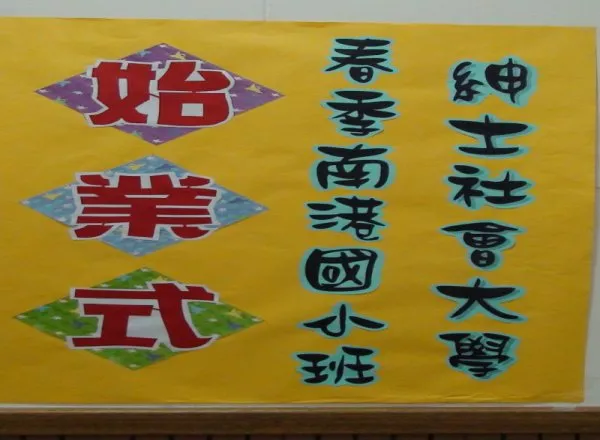 紳士社會大學
春季南港國小班
始業式